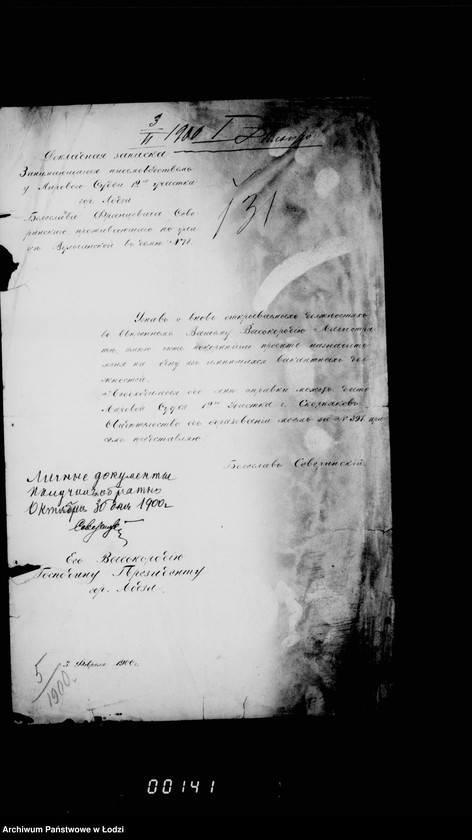 3/II 1900 I
Докладная записка
Занимающагося письмоводствомъ
у Мирового Судьи 1го участка
гор. Лодзи
Болеслава Францевича Сов
ринскаго проживающаго по ули
цѣ Вульчанской въ домѣ №
131
Узнавъ о вновь открываемыхъ должностяхъ
во ввѣренномъ Вашему Высокородію Магистра
тѣ, имѣю честь покорнѣйше просить назначить
меня на одну изъ имѣющихся вакантныхъ дол
жностей.
Необходимыя обо мнѣ справки можетъ дать
Мировой Судья 1го Участка г. Скорняковъ.
Свидѣтельство объ образованіи моемъ за № 391 при
семъ представляю.
Болеславъ Совринскій
Личные документы
получилъ обратно
Октября 30 дня 1900 г
Его Высокородію
Господину Президенту
гор. Лодзи.
3 Февраля 1900 г.
5/1900 г.
00141
Archiwum Państwowe w Łodzi